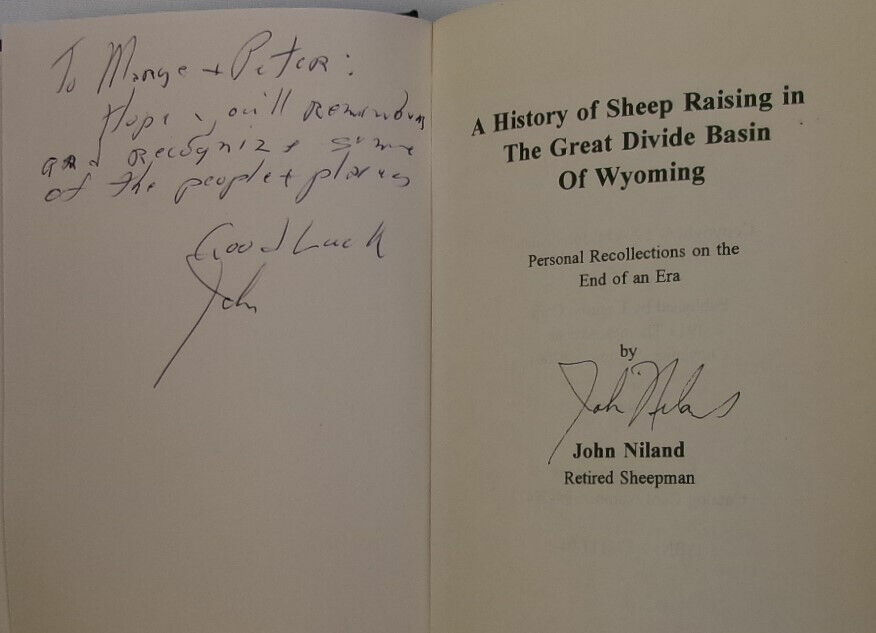 To Marge + Peter:
Hope you'll remember
and recognize some
of the people + places
Good Luck
John
A History of Sheep Raising in
The Great Divide Basin
Of Wyoming
Personal Recollections on the
End of an Era
by
John Niland
John Niland
Retired Sheepman